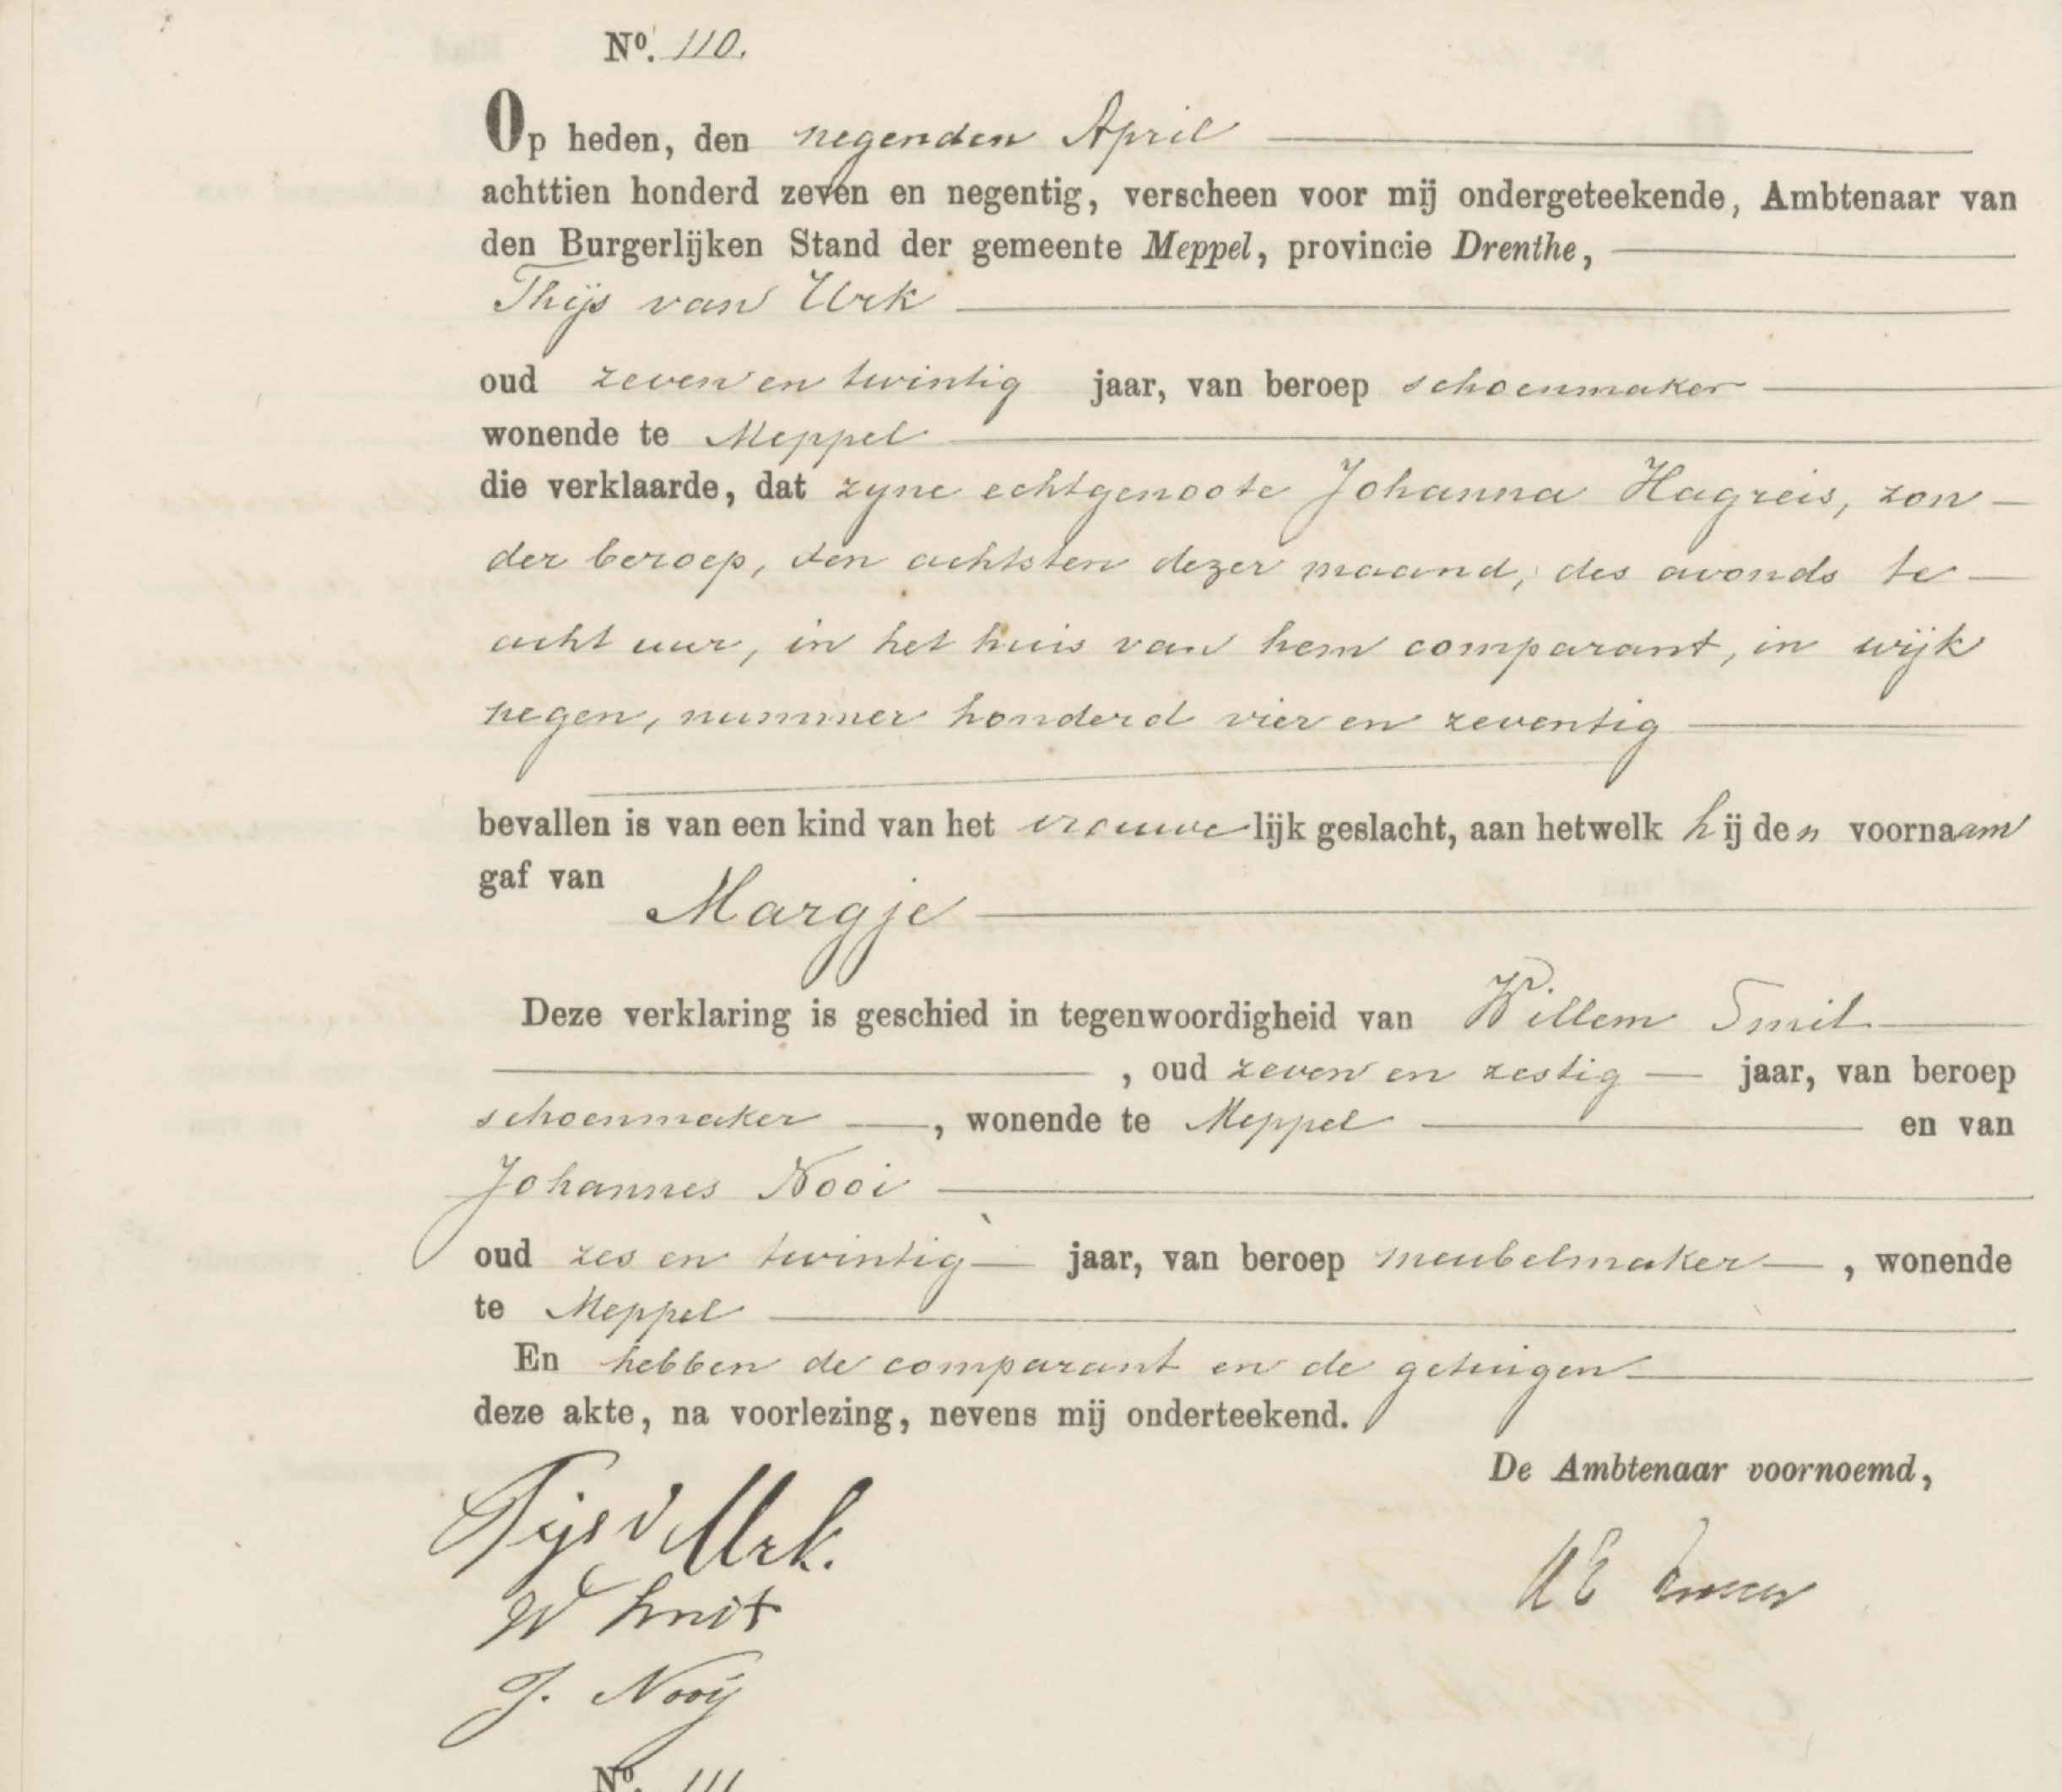 No. 110.
Op heden, den negenden April
achttien honderd zeven en negentig, verscheen voor mij ondergeteekende, Ambtenaar van
den Burgerlijken Stand der gemeente Meppel, provincie Drenthe,
Thijs van Urk
oud zeven en twintig jaar, van beroep schoenmaker
wonende te Meppel
die verklaarde, dat zyne echtgenoote Johanna Hagreis, zon-
der beroep, den achtsten dezer maand, des avonds te
acht uur, in het huis van hem comparant, in wijk
negen, nummer honderd vier en zeventig
bevallen is van een kind van het vrouwelijk geslacht, aan hetwelk hij den voornaam
gaf van Margje
Deze verklaring is geschied in tegenwoordigheid van Willem Smit
, oud zeven en zestig jaar, van beroep
schoenmaker, wonende te Meppel en van
Johannes Nooi
oud zes en twintig jaar, van beroep meubelmaker, wonende
te Meppel
En hebben de comparant en de getuigen
deze akte, na voorlezing, nevens mij onderteekend.
De Ambtenaar voornoemd,
Tijs v Urk.
W Smit
J. Nooij
No. 111